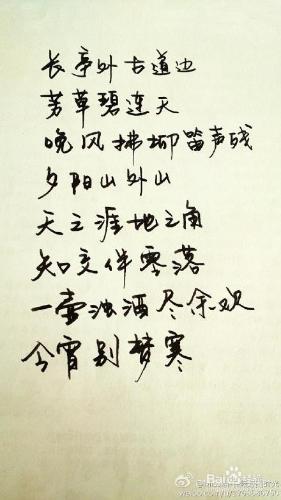 长亭外古道边
芳草碧连天
晚风拂柳笛声残
夕阳山外山
天之涯地之角
知交伴零落
一壶浊酒尽余欢
今宵别梦寒